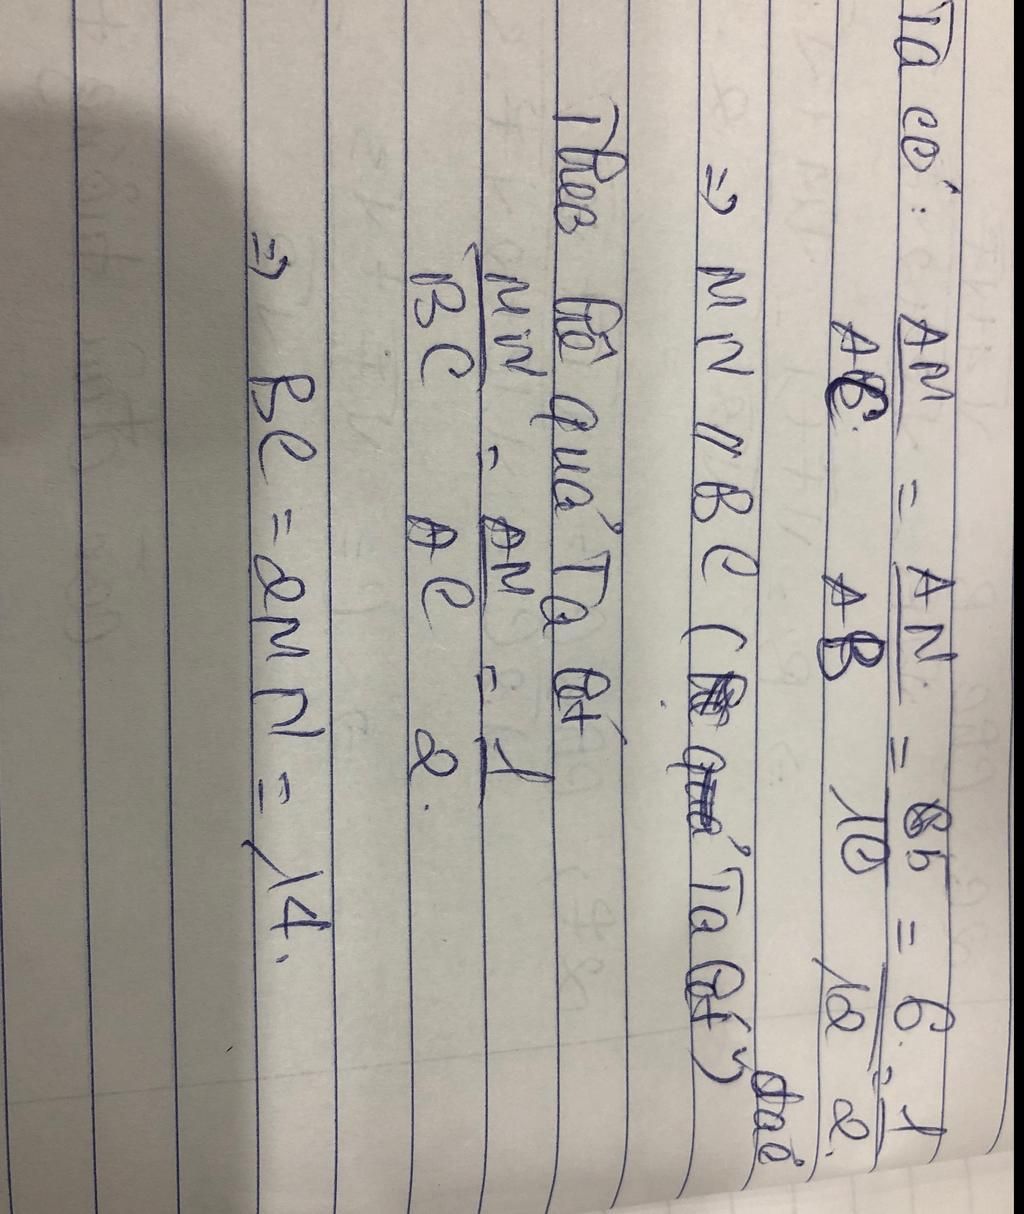 Ta có: AM/AC = AN/AB = 5/10 = 6/12 = 1/2.
=> MN // BC (Ta lét đảo)
Theo hệ quả Ta lét
MN/BC = AN/AC = 1/2.
=> BC = 2MN = 14.